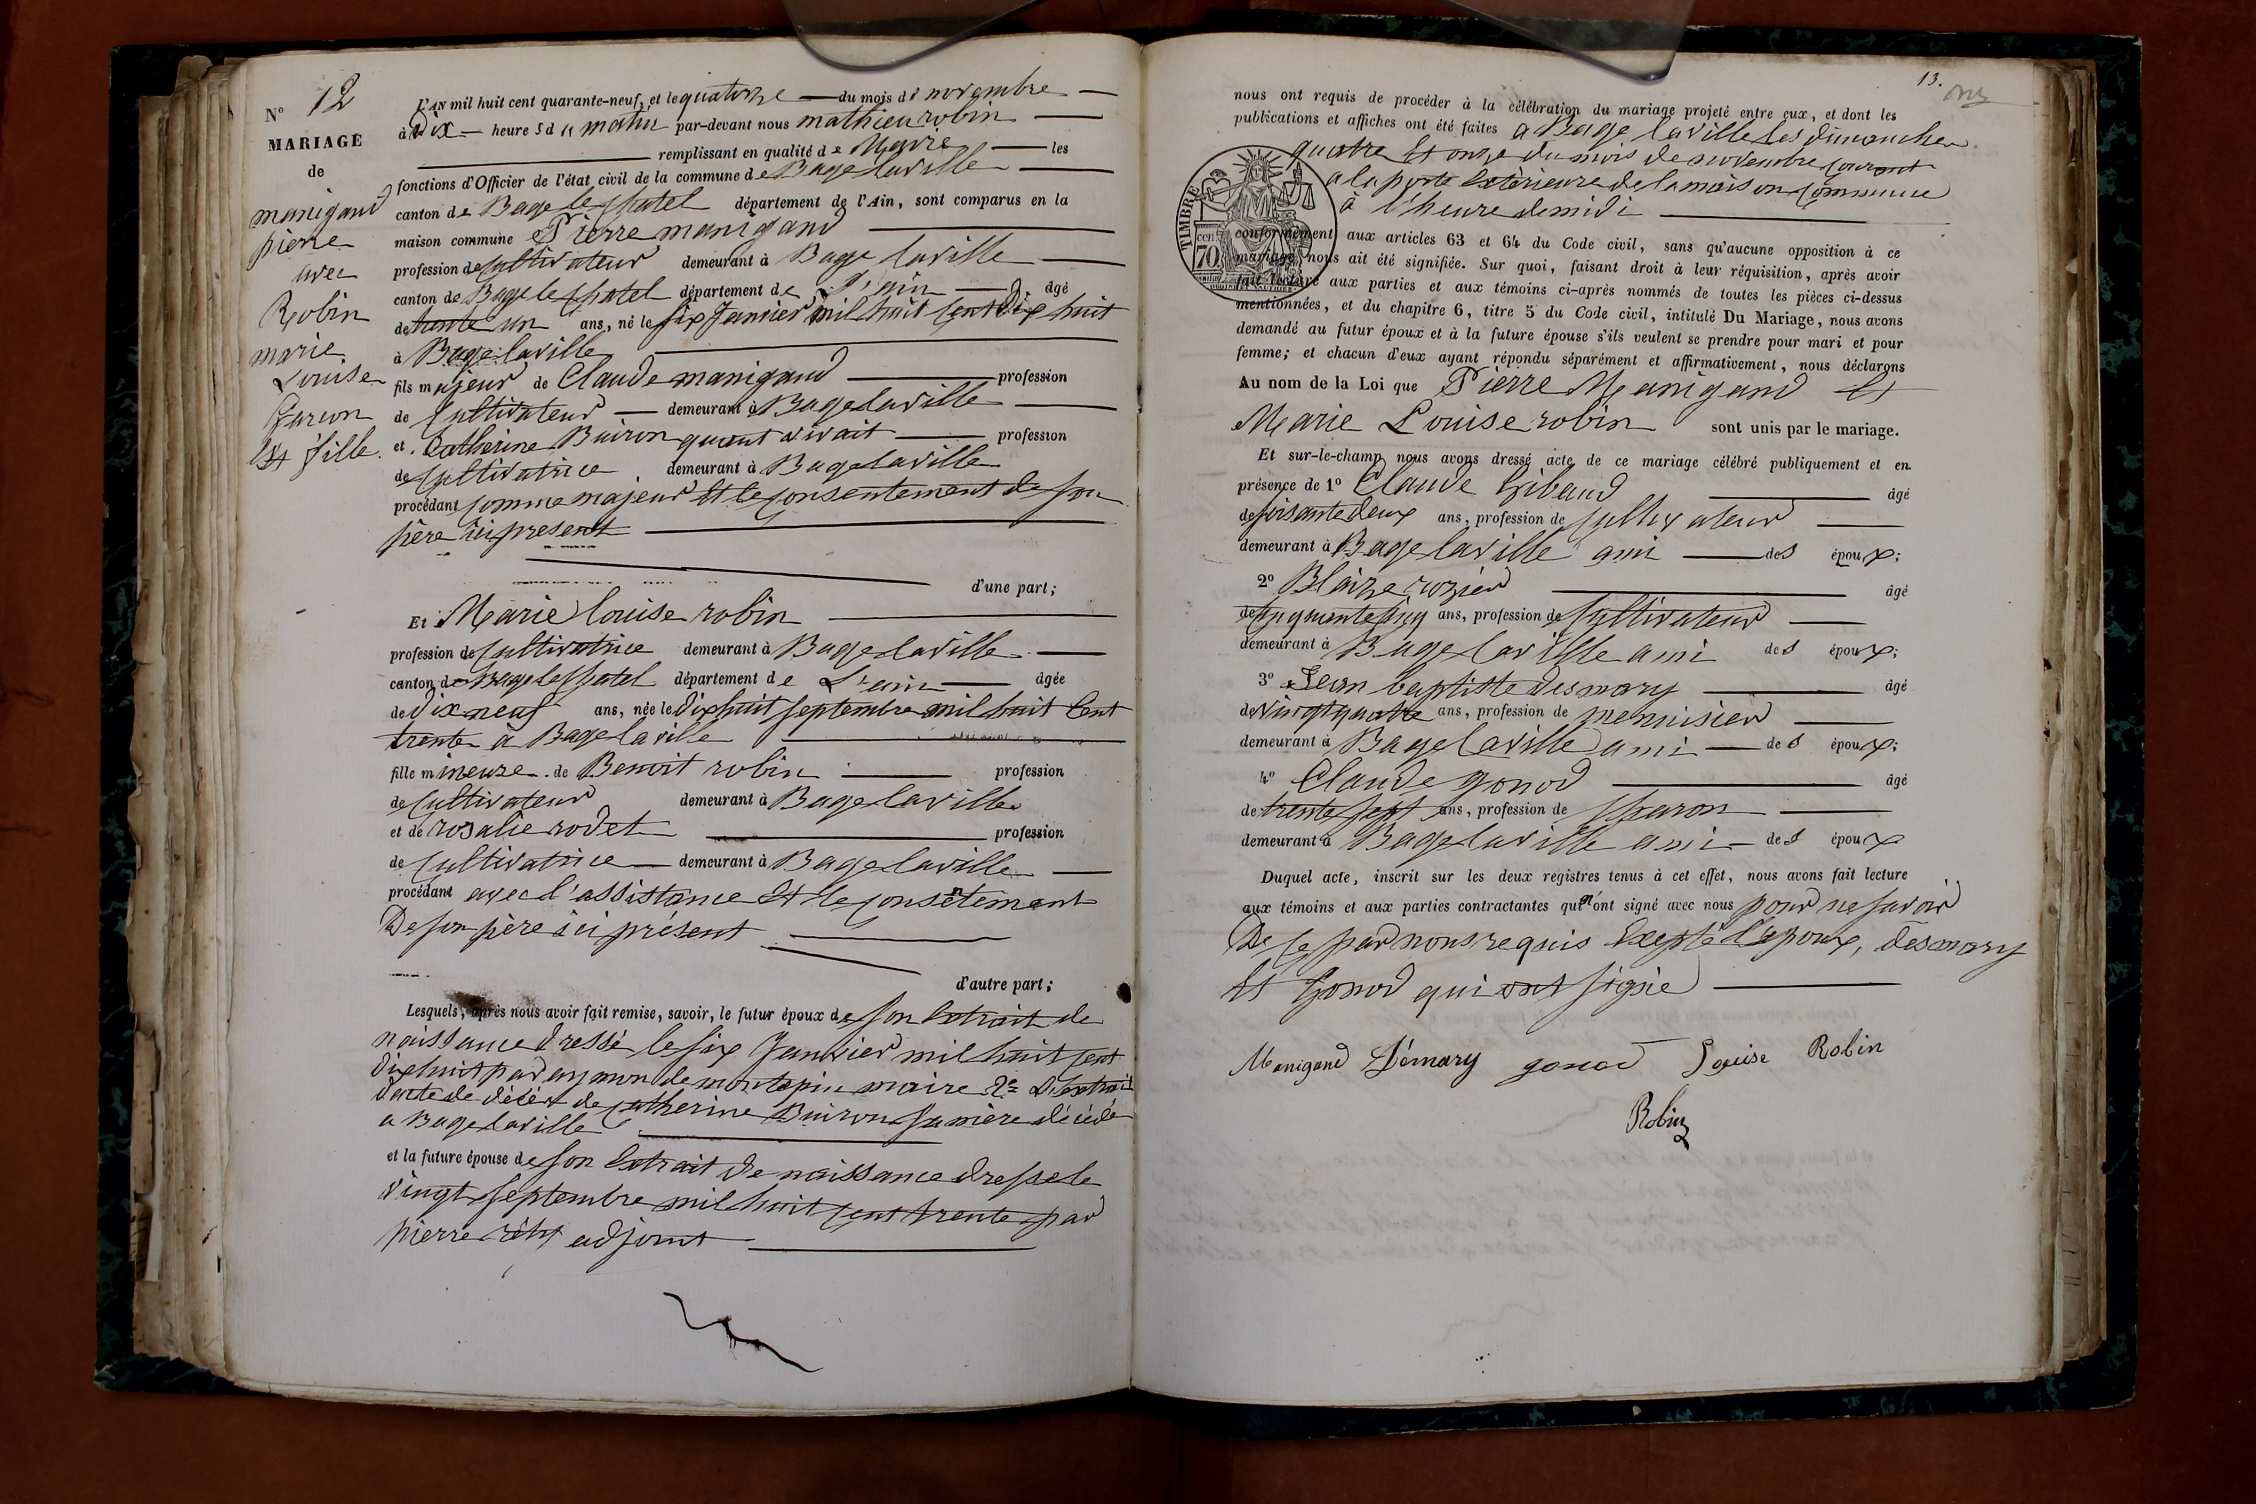 N° 12
MARIAGE
de
manigaud
pierre
avec
Robin
marie
Louise
Garcon
Et fille.
L'an mil huit cent quarante-neuf, et le quatorze du mois de novembre
à Dix heures du matin par-devant nous mathieu robin
remplissant en qualité de Maire les
fonctions d'Officier de l'état civil de la commune de Bage laville
canton de Bage le chatel département de l'Ain, sont comparus en la
maison commune Pierre manigaud
profession de cultivateur demeurant à Bage laville
canton de Bage le chatel département de L'ain âgé
de trente un ans, né le six Janvier mil huit cent dix huit
à Bage laville
fils majeur de Claude manigaud profession
de cultivateur demeurant à Bage laville
et Catherine Buiron quant vivait profession
de cultivatrice demeurant à Bage laville
procédant comme majeur Et le consentement de son
père ici present
d'une part;
Et Marie louise robin
profession de cultivatrice demeurant à Bage laville
canton de Bage le chatel département de L'ain âgée
de dix neuf ans, née le dix huit septembre mil huit cent
trente à Bage laville
fille mineure de Benoit robin profession
de cultivateur demeurant à Bage laville
et de rosalie rodet profession
de cultivatrice demeurant à Bage laville
procédant avec l'assistance Et le consentement
De son père ici présent
d'autre part;
Lesquels, après nous avoir fait remise, savoir, le futur époux de son Extrait de
naissance dressé le six Janvier mil huit cent
dix huit par aymon de montepin maire 2° L'extrait
d'acte de décès de catherine Buiron sa mère décédé
a Bage laville
et la future épouse de son Extrait de naissance dressé le
vingt septembre mil huit cent trente par
pierre adjoint
13.
nous ont requis de procéder à la célébration du mariage projeté entre eux, et dont les
publications et affiches ont été faites a Bage laville les dimanches
quatre Et onze du mois de novembre courant
a la porte Extérieure de la maison commune
à l'heure de midi
TIMBRE
70 cent
conformément aux articles 63 et 64 du Code civil, sans qu'aucune opposition à ce
mariage nous ait été signifiée. Sur quoi, faisant droit à leur réquisition, après avoir
fait lecture aux parties et aux témoins ci-après nommés de toutes les pièces ci-dessus
mentionnées, et du chapitre 6, titre 5 du Code civil, intitulé Du Mariage, nous avons
demandé au futur époux et à la future épouse s'ils veulent se prendre pour mari et pour
femme; et chacun d'eux ayant répondu séparément et affirmativement, nous déclarons
Au nom de la Loi que Pierre Manigaud Et
Marie Louise robin sont unis par le mariage.
Et sur-le-champ nous avons dressé acte de ce mariage célébré publiquement et en
présence de 1° Claude Gibaud âgé
de soisante deux ans, profession de cultivateur
demeurant à Bage laville ami des époux;
2° Blaize rozier âgé
de cinquante cinq ans, profession de cultivateur
demeurant à Bage laville ami des époux;
3° Jean baptiste desmary âgé
de vingt quatre ans, profession de mennisier
demeurant à Bage laville ami des époux;
4° Claude gonod âgé
de trente sept ans, profession de charon
demeurant à Bage laville ami des époux
Duquel acte, inscrit sur les deux registres tenus à cet effet, nous avons fait lecture
aux témoins et aux parties contractantes qui n'ont signé avec nous pour ne savoir
De ce par nous requis Excepté L'epoux, desmary
Et Gonod qui ont signé
Manigaud Démary gonod Louise Robin
Robin